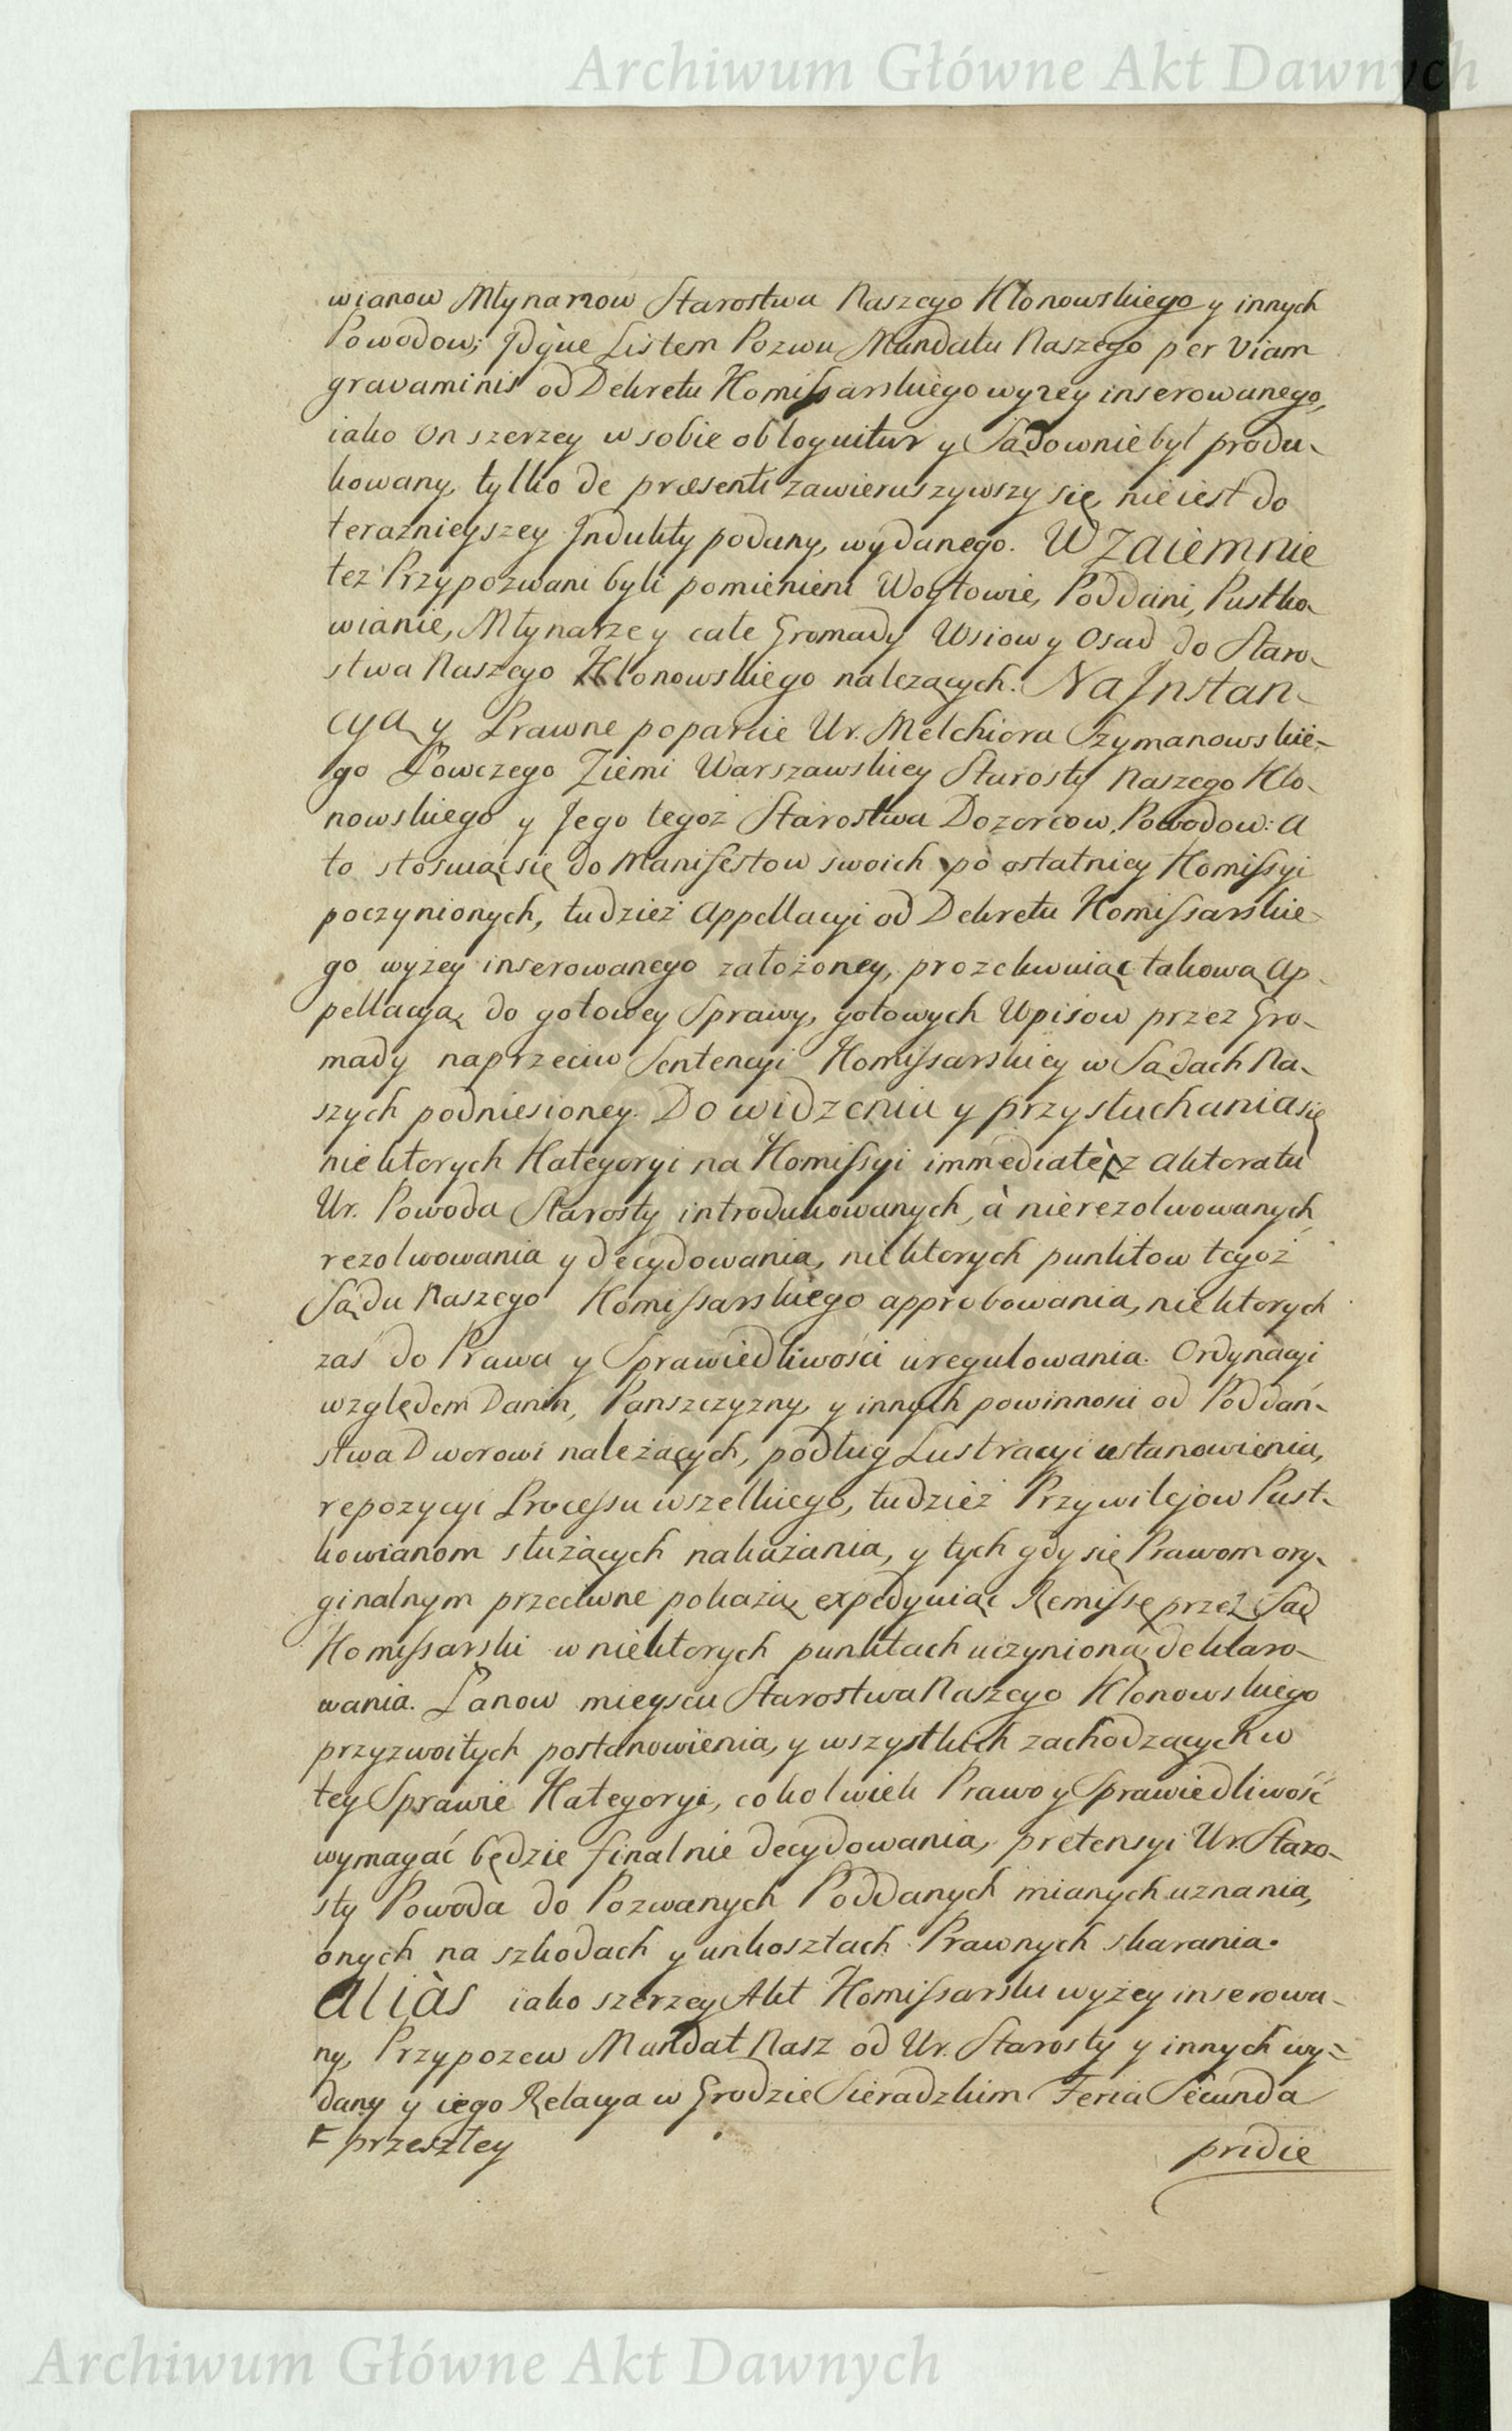 Archiwum Główne Akt Dawnych
wianow Młynarzow Starostwa Naszego Klonowskiego y innych
Powodow; Jdque Listem Pozwu Mandatu Naszego per Viam
gravaminis od Dekretu Komissarskiego wyzey inserowanego,
iako on szerzey w sobie obloquitur y Sądownie był produ-
kowany, tylko de præsenti zawieruszywszy się, nie iest do
teraznieyszey Jndukty podany, wydanego. Wzaiemnie
tez Przypozwani byli pomienieni Woytowie, Poddani, Pustko-
wianie, Młynarze y całe Gromady Wsiow y Osad do Staro-
stwa Naszego Klonowskiego nalezących. Na Jnstan-
cyą y Prawne poparcie Ur. Melchiora Szymanowskie-
go Łowczego Ziemi Warszawskiey Starosty Naszego Klo-
nowskiego y Jego tegoż Starostwa Dozorcow, Powodow: a
to stosuiąc się do Manifestow swoich po ostatniey Komissyi
poczynionych, tudzież Appellacyi od Dekretu Komissarskie-
go wyżey inserowanego założoney, prozekwuiąc takową Ap-
pellacyą, do gotowey Sprawy, gotowych Wpisow przez Gro-
mady naprzeciw Sentencyi Komissarskiey w Sądach Na-
szych podniesioney. Do widzenia y przysłuchania się
niektorych Kategoryi na Komissyi immediatè z Aktoratu
Ur. Powoda Starosty introdukowanych, à nierezolwowanych
rezolwowania y decydowania, niektorych punktow tegoż
Sądu Naszego Komissarskiego approbowania, niektorych
zaś do Prawa y Sprawiedliwości uregulowania. Ordynacyi
względem Danin, Panszczyzny, y innych powinności od Poddań-
stwa Dworowi należących, podług Lustracyi ustanowienia,
repozycyi Processu wszelkiego, tudzież Przywilejow Pust-
kowianom służących nakazania, y tych gdy się Prawom ory-
ginalnym przeciwne pokażą, expedyuiąc Remissę przez Sąd
Komissarski w niektorych punktach uczynioną, deklaro-
wania. Łanow mieyscu Starostwa Naszego Klonowskiego
przyzwoitych postanowienia, y wszystkich zachodzących w
tey Sprawie Kategoryi, cokolwiek Prawo y Sprawiedliwość
wymagać będzie finalnie decydowania, pretensyi Ur. Staro-
sty Powoda do Pozwanych Poddanych mianych uznania,
onych na szkodach y unkosztach Prawnych skarania.
Aliàs iako szerzey Akt Komissarski wyżey inserowa-
ny, Przypozew Mandat Nasz od Ur. Starosty y innych wy-
dany y iego Relacya w Grodzie Sieradzkim Feria Secunda
przeszłey pridie
Archiwum Główne Akt Dawnych